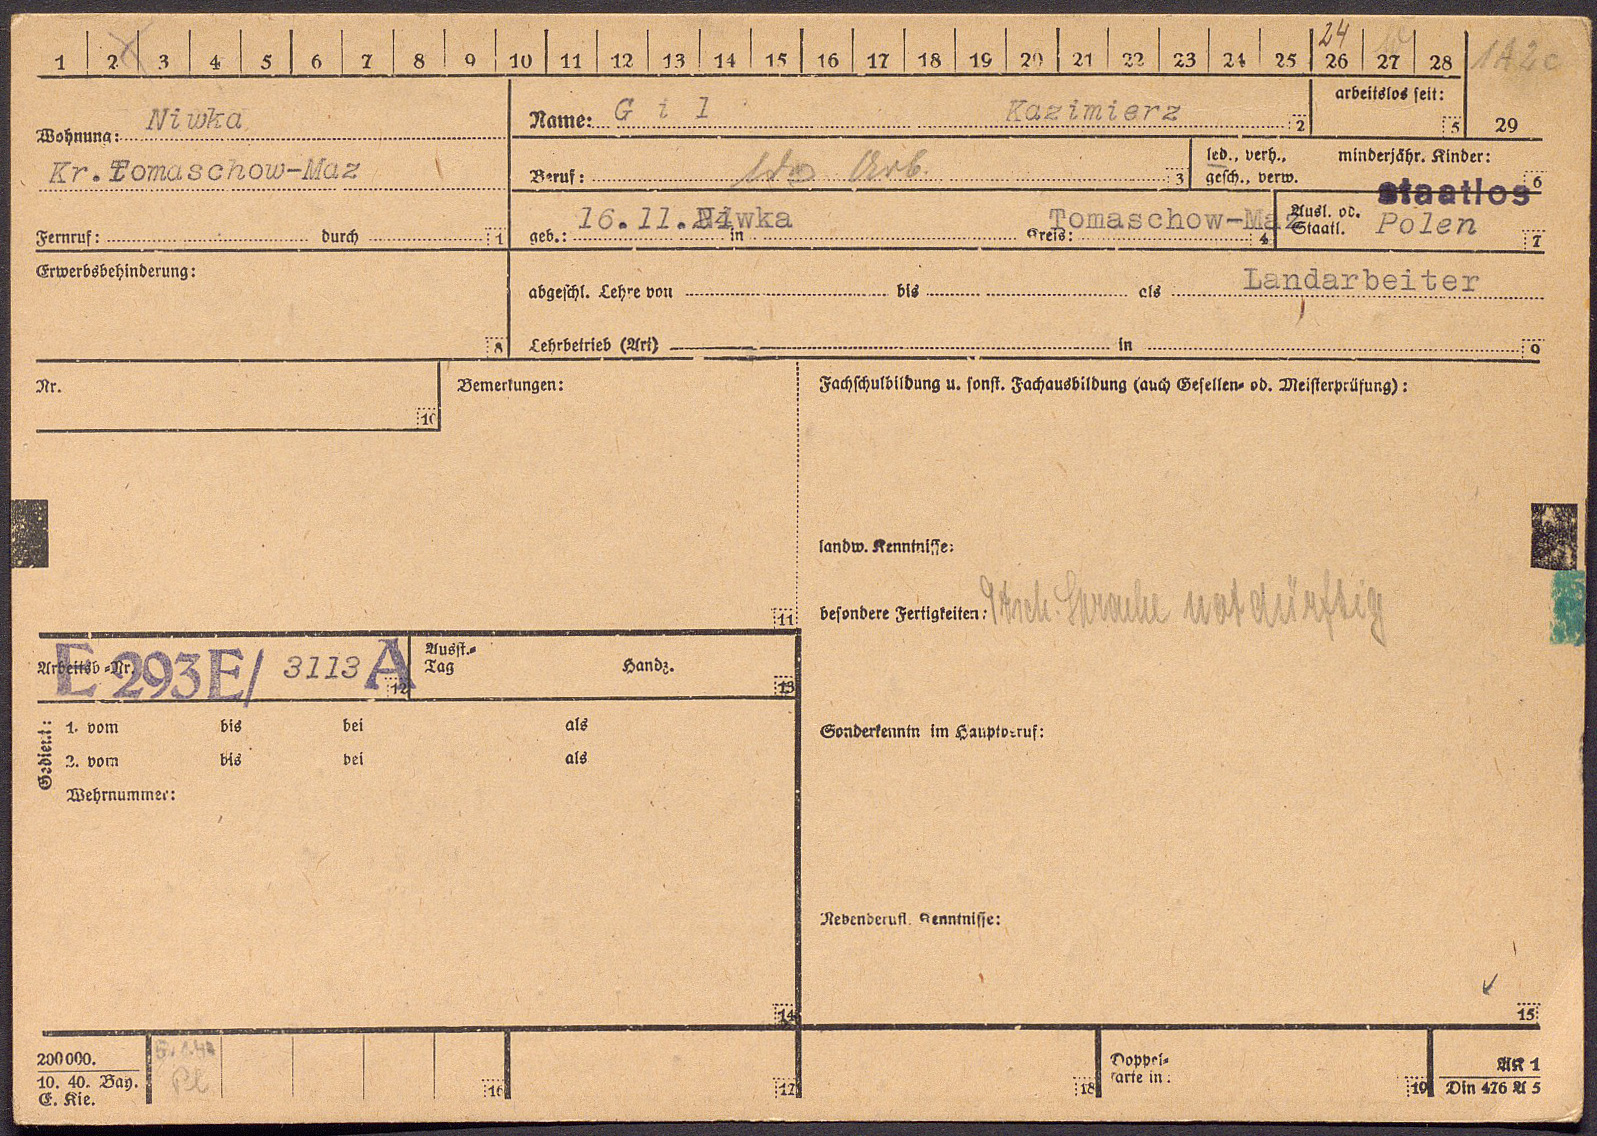 1 2 3 4 5 6 7 8 9 10 11 12 13 14 15 16 17 18 19 20 21 22 23 24 25 26 27 28 1A2c
24
Wohnung: Niwka
Kr.Tomaschow-Maz
Fernruf: durch 1
Name: G i l Kazimierz 2
arbeitslos seit: 5
29
Beruf: Arb. 3
led., verh., gesch., verw.
minderjähr. Kinder: 6
staatlos
geb.: 16.11.24 in Niwka Kreis: Tomaschow-Maz 4
Ausl. od. Staatl. Polen 7
Erwerbsbehinderung: 8
abgeschl. Lehre von bis als Landarbeiter
Lehrbetrieb (Art) in 9
Nr. 10
Bemerkungen: 11
Fachschulbildung u. sonst. Fachausbildung (auch Gesellen- od. Meisterprüfung):
landw. Kenntnisse:
besondere Fertigkeiten: Dtsch. Sprache notdürftig
Arbeitsb.-Nr. E 293E/ 3113 A 12
Ausst.-Tag Handz. 13
Gedient:
1. vom bis bei als
2. vom bis bei als
Wehrnummer:
14
Sonderkenntn im Hauptberuf:
Nebenberufl. Kenntnisse:
15
200000.
10. 40. Bay.
E. Kie.
Pl
16
17
18
Doppel-
karte in: 19
AK 1
Din 476 A 5